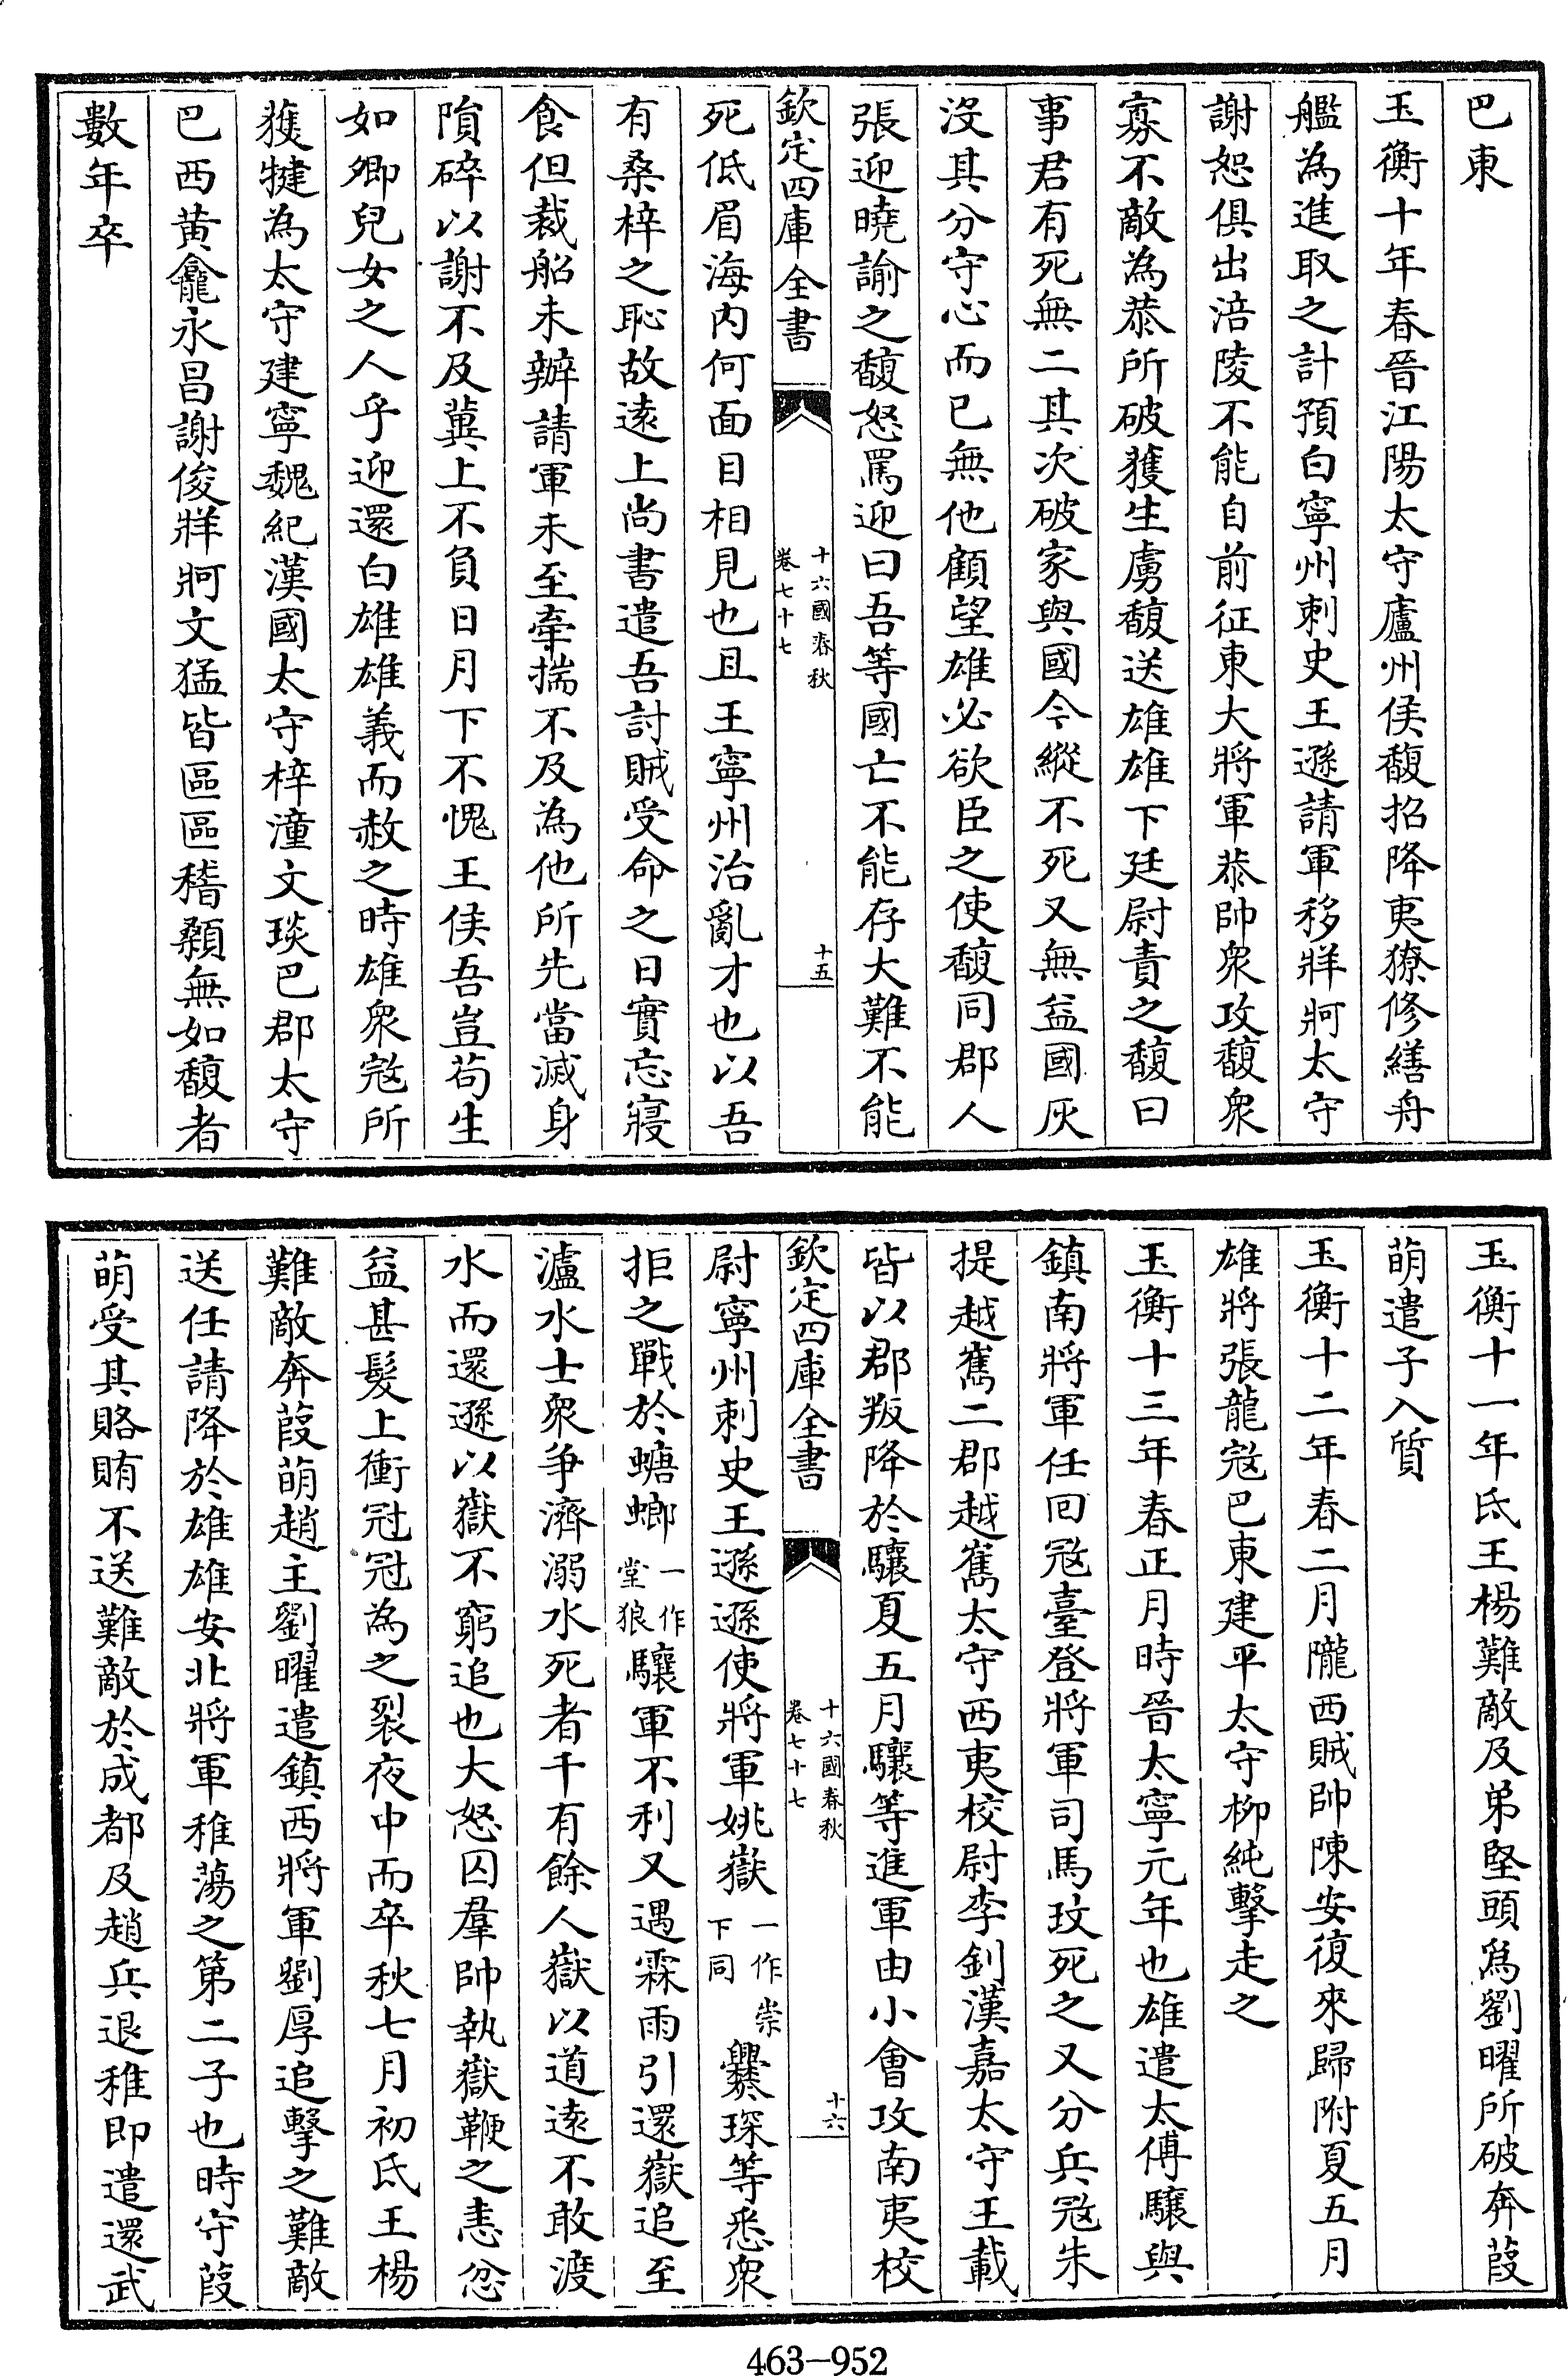 巴東
玉衡十年春晉江陽太守廬州侯馥招降夷獠修繕舟
艦為進取之計預白寧州刺史王遜請軍移牂牁太守
謝恕俱出涪陵不能自前征東大將軍恭帥衆攻馥衆
寡不敵為恭所破獲生虜馥送雄雄下廷尉責之馥曰
事君有死無二其次破家與國今縱不死又無益國灰
沒其分守心而已無他顧望雄必欲臣之使馥同郡人
張迎曉諭之馥怒罵迎曰吾等國亡不能存大難不能
欽定四庫全書
十六國春秋
卷七十七
十五
死低眉海内何面目相見也且王寧州治亂才也以吾
有桑梓之恥故逺上尚書遣吾討賊受命之日實忘寢
食但裁船未辦請軍未至牽揣不及為他所先當滅身
隕碎以謝不及冀上不負日月下不愧王侯吾豈苟生
如卿兒女之人乎迎還白雄雄義而赦之時雄衆宼所
獲犍為太守建寧魏紀漢國太守梓潼文琰巴郡太守
巴西黄龕永昌謝俊牂牁文猛皆區區稽顙無如馥者
數年卒
玉衡十一年氐王楊難敵及弟堅頭為劉曜所破奔葭
萌遣子入質
玉衡十二年春二月隴西賊帥陳安復來歸附夏五月
雄將張龍宼巴東建平太守栁純擊走之
玉衡十三年春正月時晉太寧元年也雄遣太傅驤與
鎮南將軍任回宼臺登將軍司馬玟死之又分兵宼朱
提越嶲二郡越嶲太守西夷校尉李釗漢嘉太守王載
皆以郡叛降於驤夏五月驤等進軍由小會攻南夷校
欽定四庫全書
十六國春秋
卷七十七
十六
尉寧州刺史王遜遜使將軍姚嶽一作崇下同爨琛等悉衆
拒之戰於螗螂一作堂狼驤軍不利又遇霖雨引還嶽追至
瀘水士衆爭濟溺水死者千有餘人嶽以道逺不敢渡
水而還遜以嶽不窮追也大怒囚羣帥執嶽鞭之恚忿
益甚髮上衝冠冠為之裂夜中而卒秋七月初氐王楊
難敵奔葭萌趙主劉曜遣鎮西將軍劉厚追擊之難敵
送任請降於雄雄安北將軍稚蕩之第二子也時守葭
萌受其賂賄不送難敵於成都及趙兵退稚即遣還武
463-952